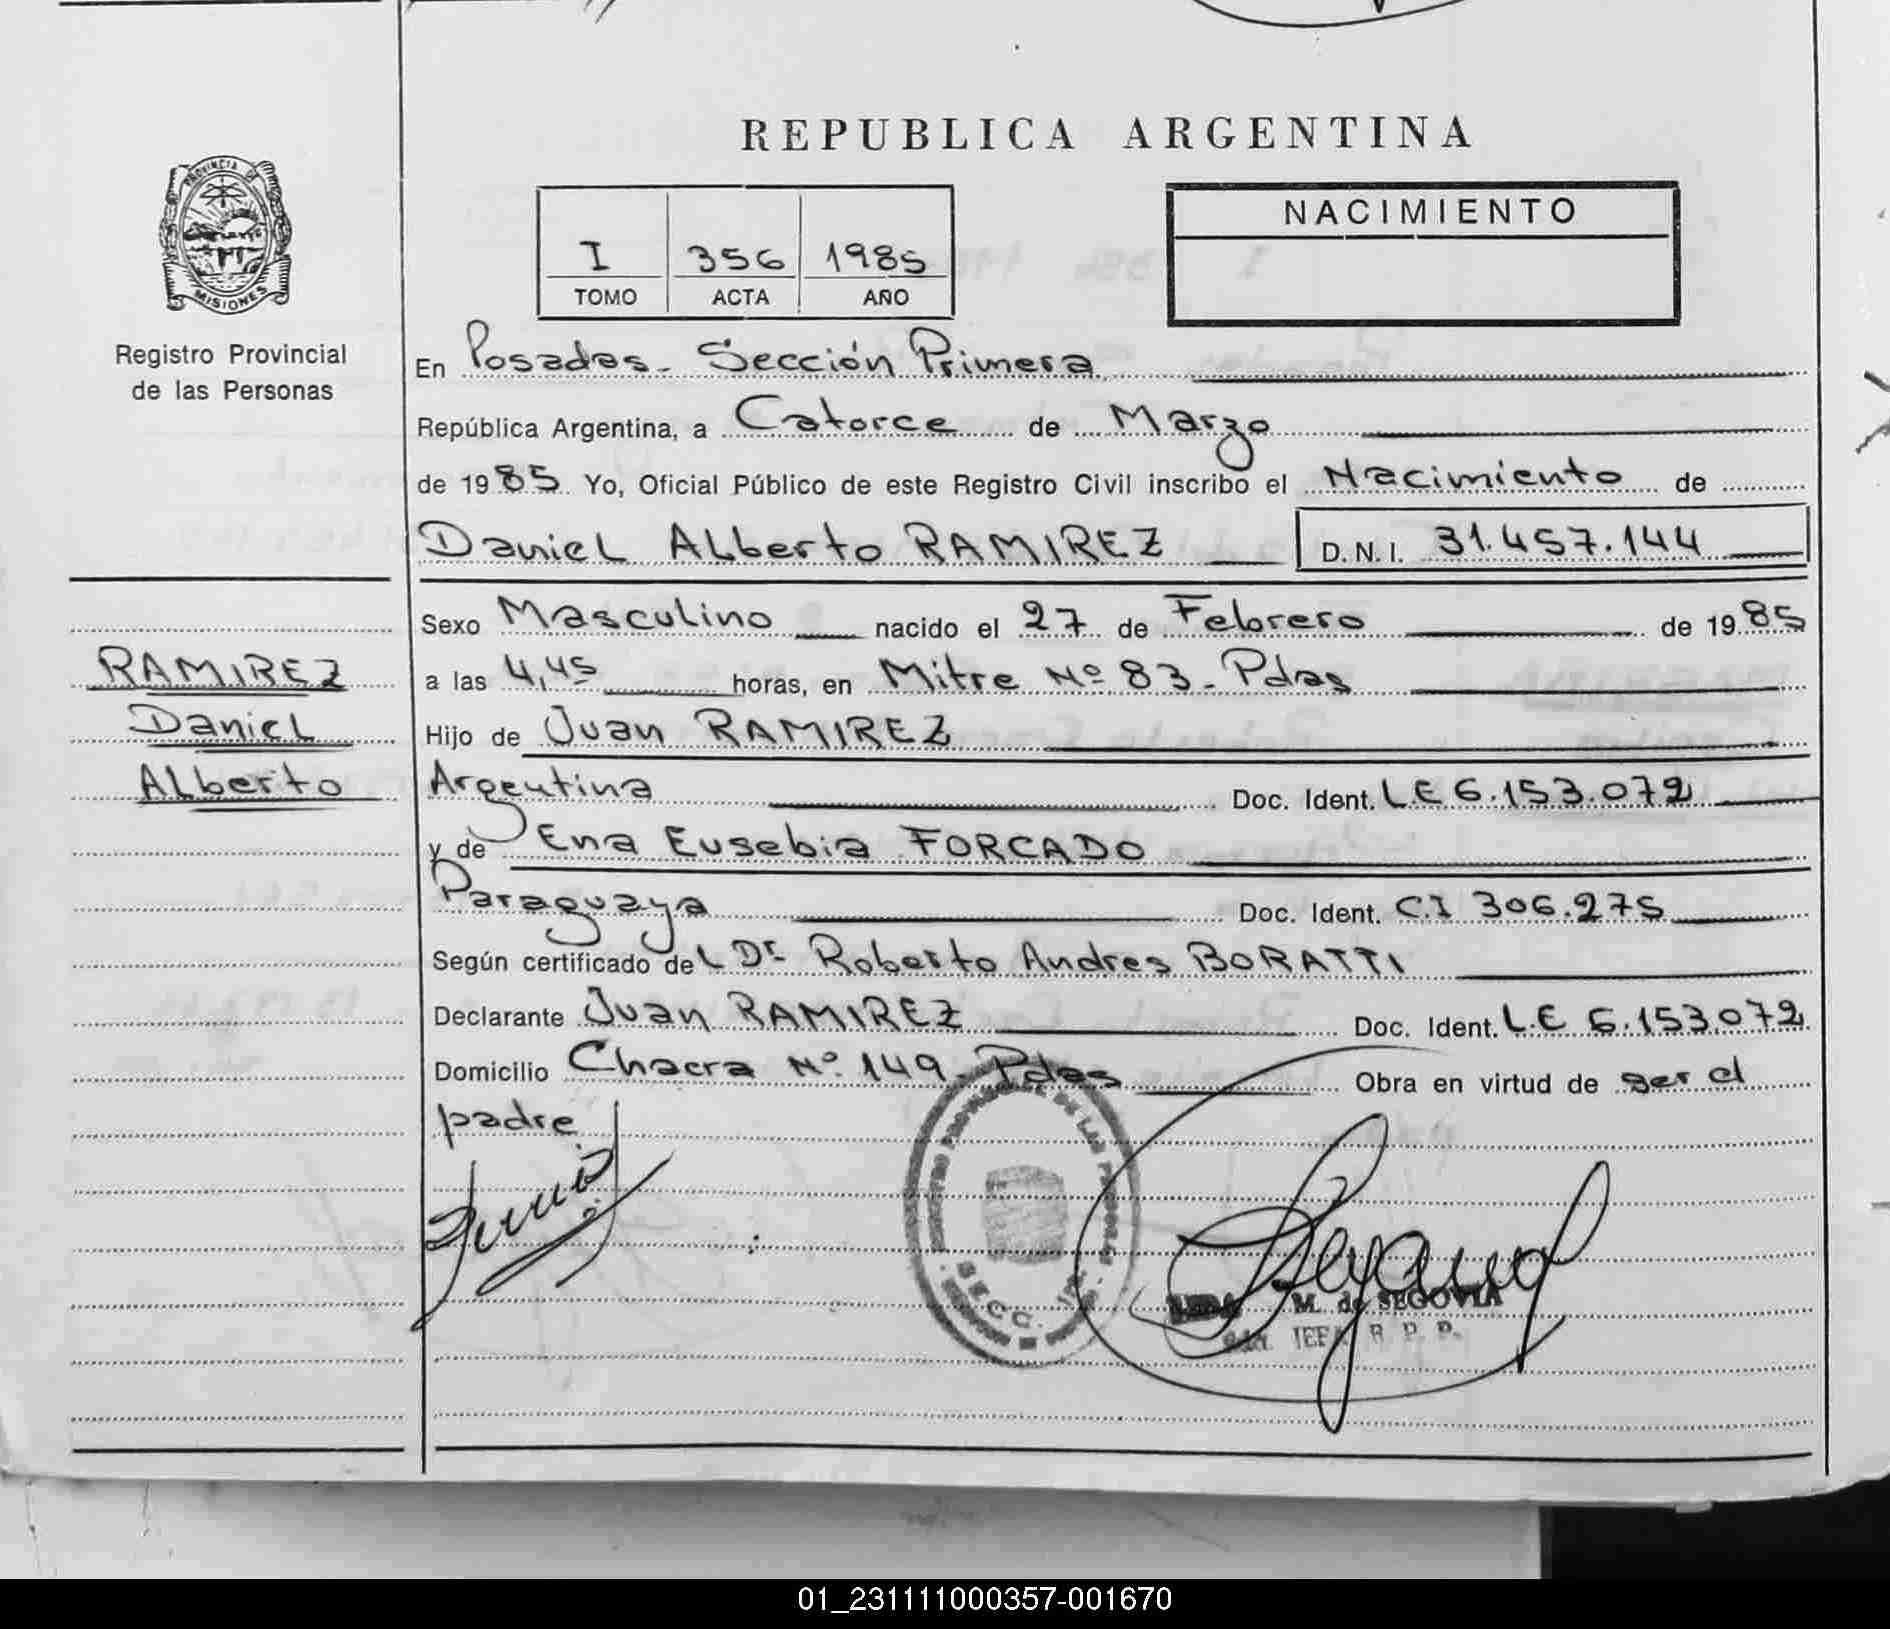 REPUBLICA ARGENTINA
PROVINCIA DE
MISIONES
Registro Provincial
de las Personas
I 356 1985
TOMO ACTA AÑO
NACIMIENTO
En Posadas- Sección Primera
República Argentina, a Catorce de Marzo
de 1985 Yo, Oficial Público de este Registro Civil inscribo el Nacimiento de
Daniel Alberto RAMIREZ D.N.I. 31.457.144
Sexo Masculino nacido el 27 de Febrero de 1985
a las 4,45 horas, en Mitre Nº 83- Pdas
Hijo de Juan RAMIREZ
Argentina Doc. Ident. L.E 6.153.072
y de Ena Eusebia FORCADO
Paraguaya Doc. Ident. C.I 306.275
Según certificado del Dr Roberto Andres BORATTI
Declarante Juan RAMIREZ Doc. Ident. L.E 6.153.072
Domicilio Chacra Nº 149- Pdas Obra en virtud de ser el
padre
RAMIREZ
Daniel
Alberto
REGISTRO PROVINCIAL DE LAS PERSONAS
SECC.
M. de SEGOVIA
R. P. P.
01_231111000357-001670